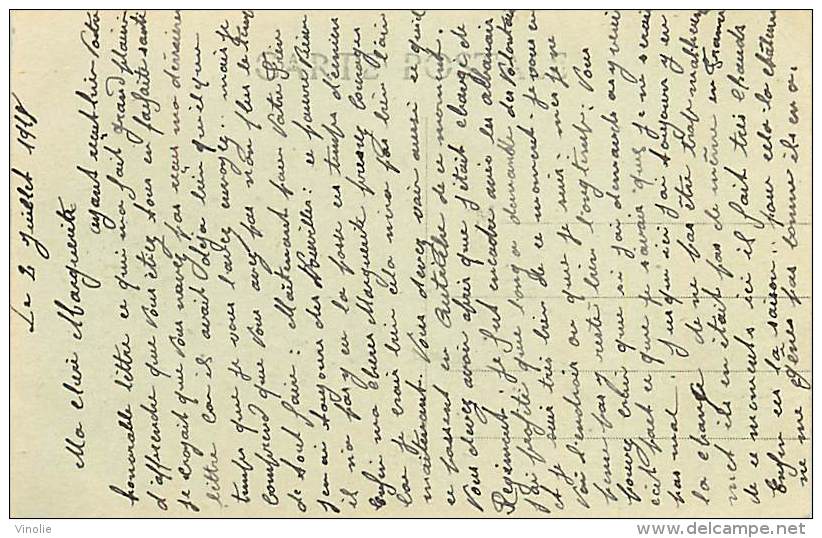 Le 2 Juillet 1918
Ma chère Marguerite
ayant reçut hier votre
honorable lettre ce qui m'a fait grand plaisir
d'apprendre que vous étiez tous en parfaite santé
je croyait que vous n'avez pas reçus ma dernière
lettre car il avait déja bien quelque
temps que je vous l'avez envoyez. mais je
comprend que vous avez pas non plus le temps
de tout faire: Maitenant pour votre
j'en ai toujours des Nouvelles: ce pauvre
il na pas eu la posse ces temps derniers
Enfin ma chere Marguerite prenez courage
car je crois bien cela nira pas bien loin
maitenant. Vous devez voir aussi ce qu'il
ce passent en Autriche de ce moment.
Vous devez avoir apris que j'était changé de
Regiment. je fut encadré avec les albanais
j'ai profité que l'on a demandé des Volontaires
et je suis très bien de ce moment. je vous en
l'endroit ou que je suis mes je ne
pense pas y resté bien longtemps. Vous
pouvez croire que si j'ai demandé as y venir
c'ait parce que je savais que je ne serait
pas mal. Jusqu'ici j'ai toujours y eu
la chance de ne pas être trop malheureux
met ils en était pas de même en France
de ce moments ici il fait très chauds
Enfin ces la saison. pour cela la chaleur
ne me gènes pas comme ils en a.
CARTE POSTALE
Vinolie
www.delcampe.net